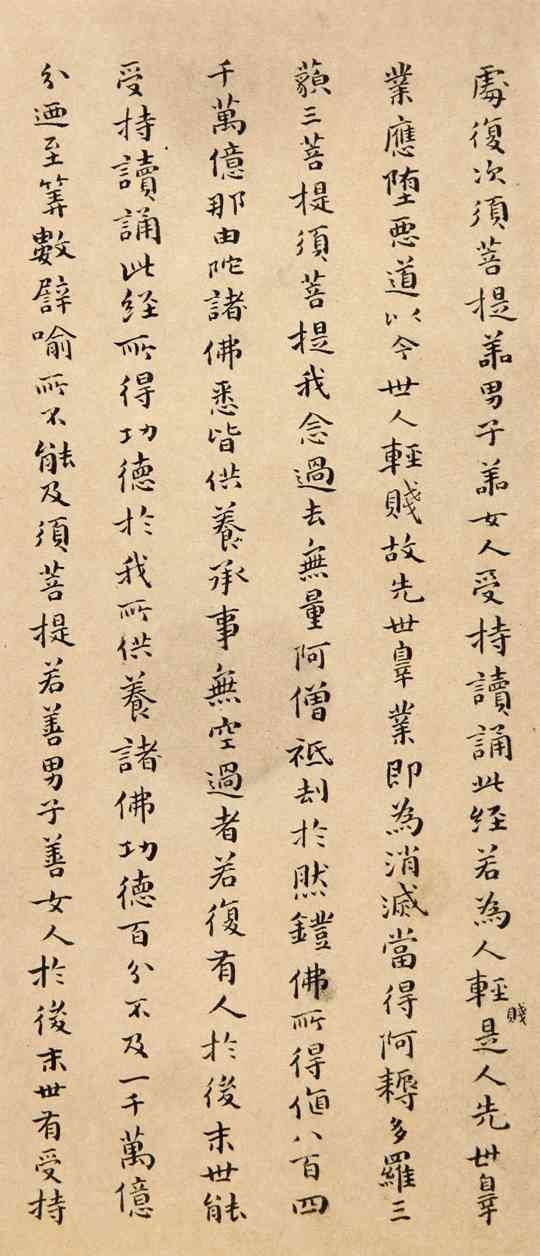 處復次須菩提善男子善女人受持讀誦此經若為人輕賤是人先世辠
業應墮惡道以今世人輕賤故先世辠業即為消滅當得阿耨多羅三
藐三菩提須菩提我念過去無量阿僧祇劫於然鐙佛所得值八百四
千萬億那由陀諸佛悉皆供養承事無空過者若復有人於後末世能
受持讀誦此經所得功德於我所供養諸佛功德百分不及一千萬億
分迺至筭數譬喻所不能及須菩提若善男子善女人於後末世有受持